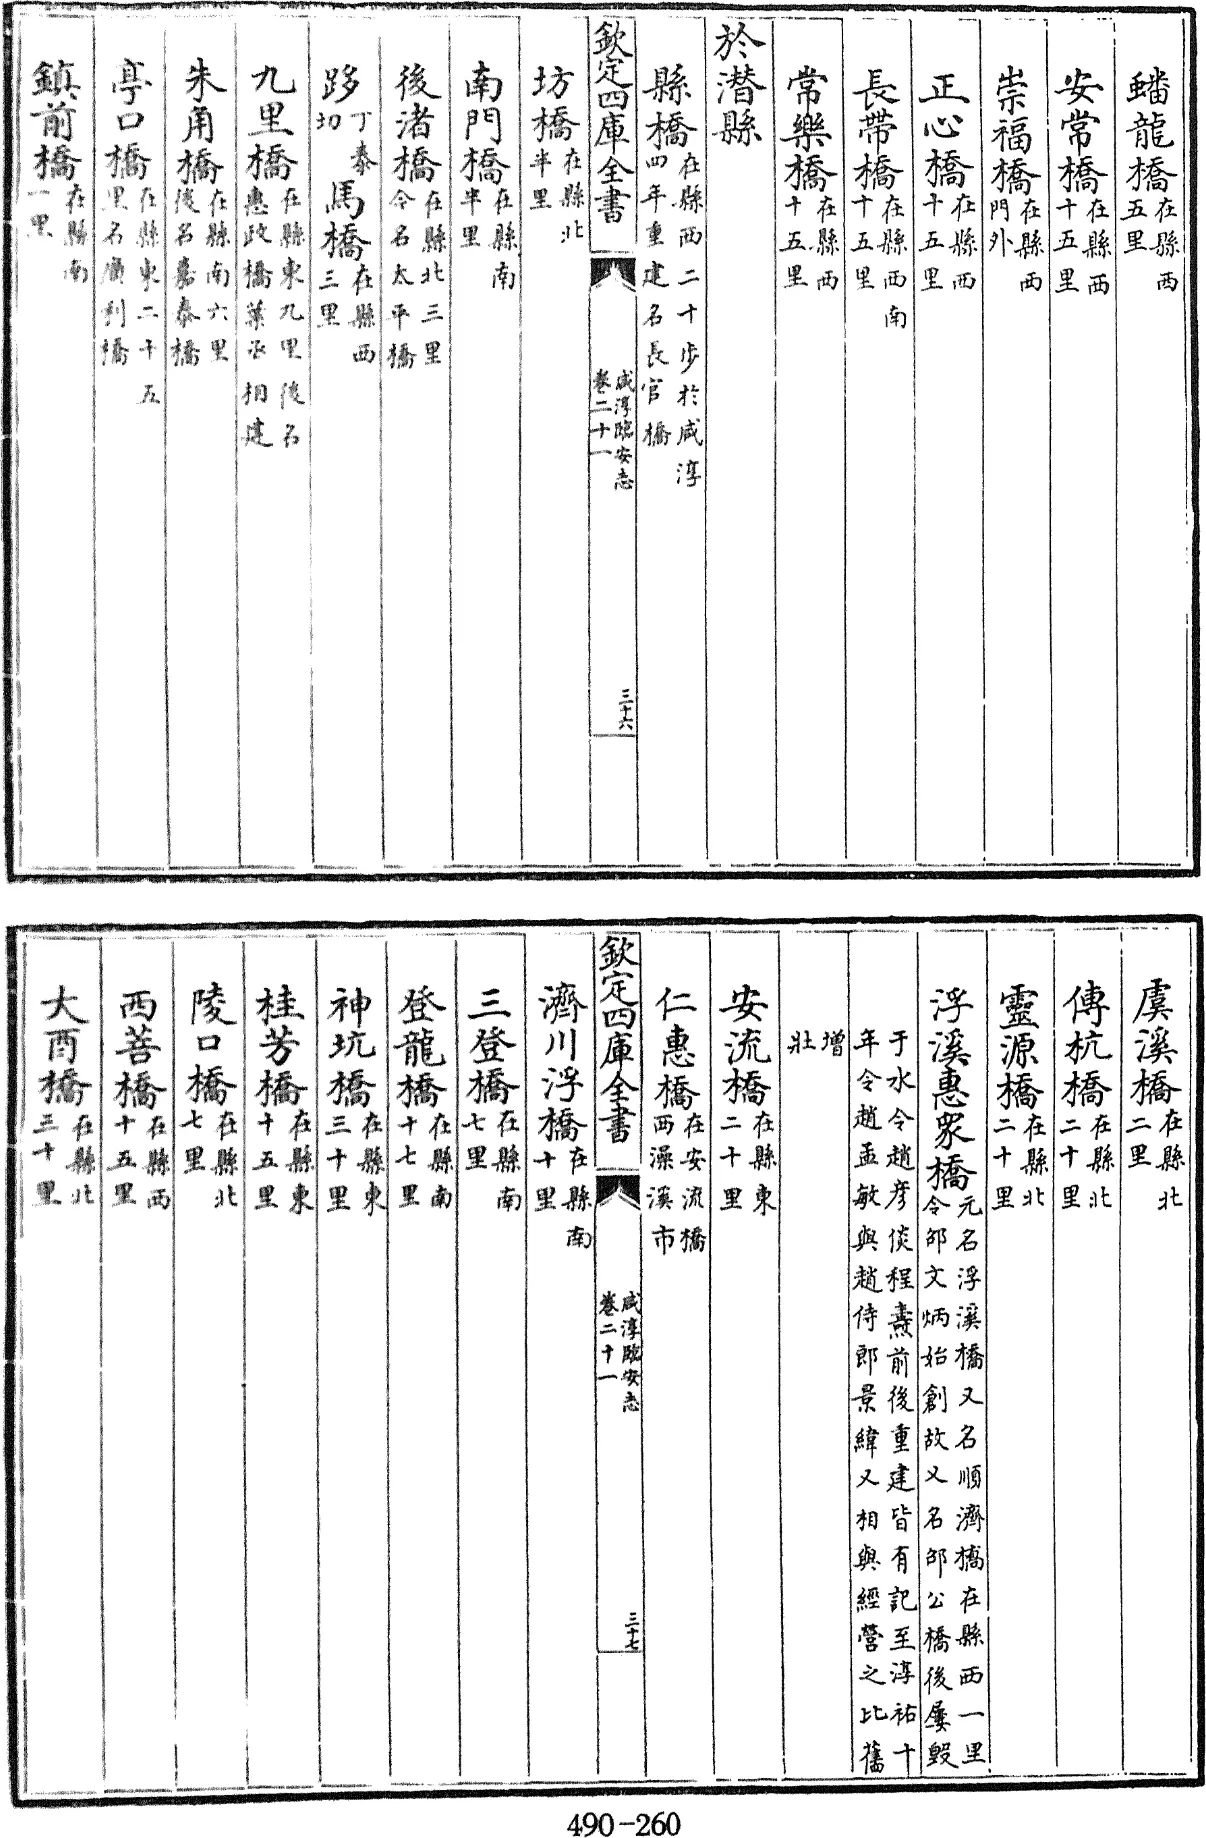 蟠龍橋在縣西五里
安常橋在縣西十五里
崇福橋在縣西門外
正心橋在縣西十五里
長帶橋在縣西南十五里
常樂橋在縣西十五里
於潛縣
縣橋在縣西二十步於咸淳四年重建名長官橋
欽定四庫全書 咸淳臨安志卷二十一 三十六
坊橋在縣北半里
南門橋在縣南半里
後渚橋在縣北三里令名太平橋
跢丁泰切馬橋在縣西三里
九里橋在縣東九里後名惠政橋葉丞相建
朱角橋在縣南六里後名嘉泰橋
亭口橋在縣東二十五里名廣利橋
鎮前橋在縣南一里
虞溪橋在縣北二里
傳杭橋在縣北二十里
靈源橋在縣北二十里
浮溪惠衆橋元名浮溪橋又名順濟橋在縣西一里令邵文炳始創故又名邵公橋後屢毀
于水令趙彥倓程燾前後重建皆有記至淳祐十年令趙孟敏與趙侍郎景緯又相與經營之比舊
增壯
安流橋在縣東二十里
仁惠橋在安流橋西澡溪市
欽定四庫全書 咸淳臨安志卷二十一 三十七
濟川浮橋在縣南十里
三登橋在縣南七里
登龍橋在縣南十七里
神坑橋在縣東三十里
桂芳橋在縣東十五里
陵口橋在縣北七里
西菩橋在縣西十五里
大酉橋在縣北三十里
490-260